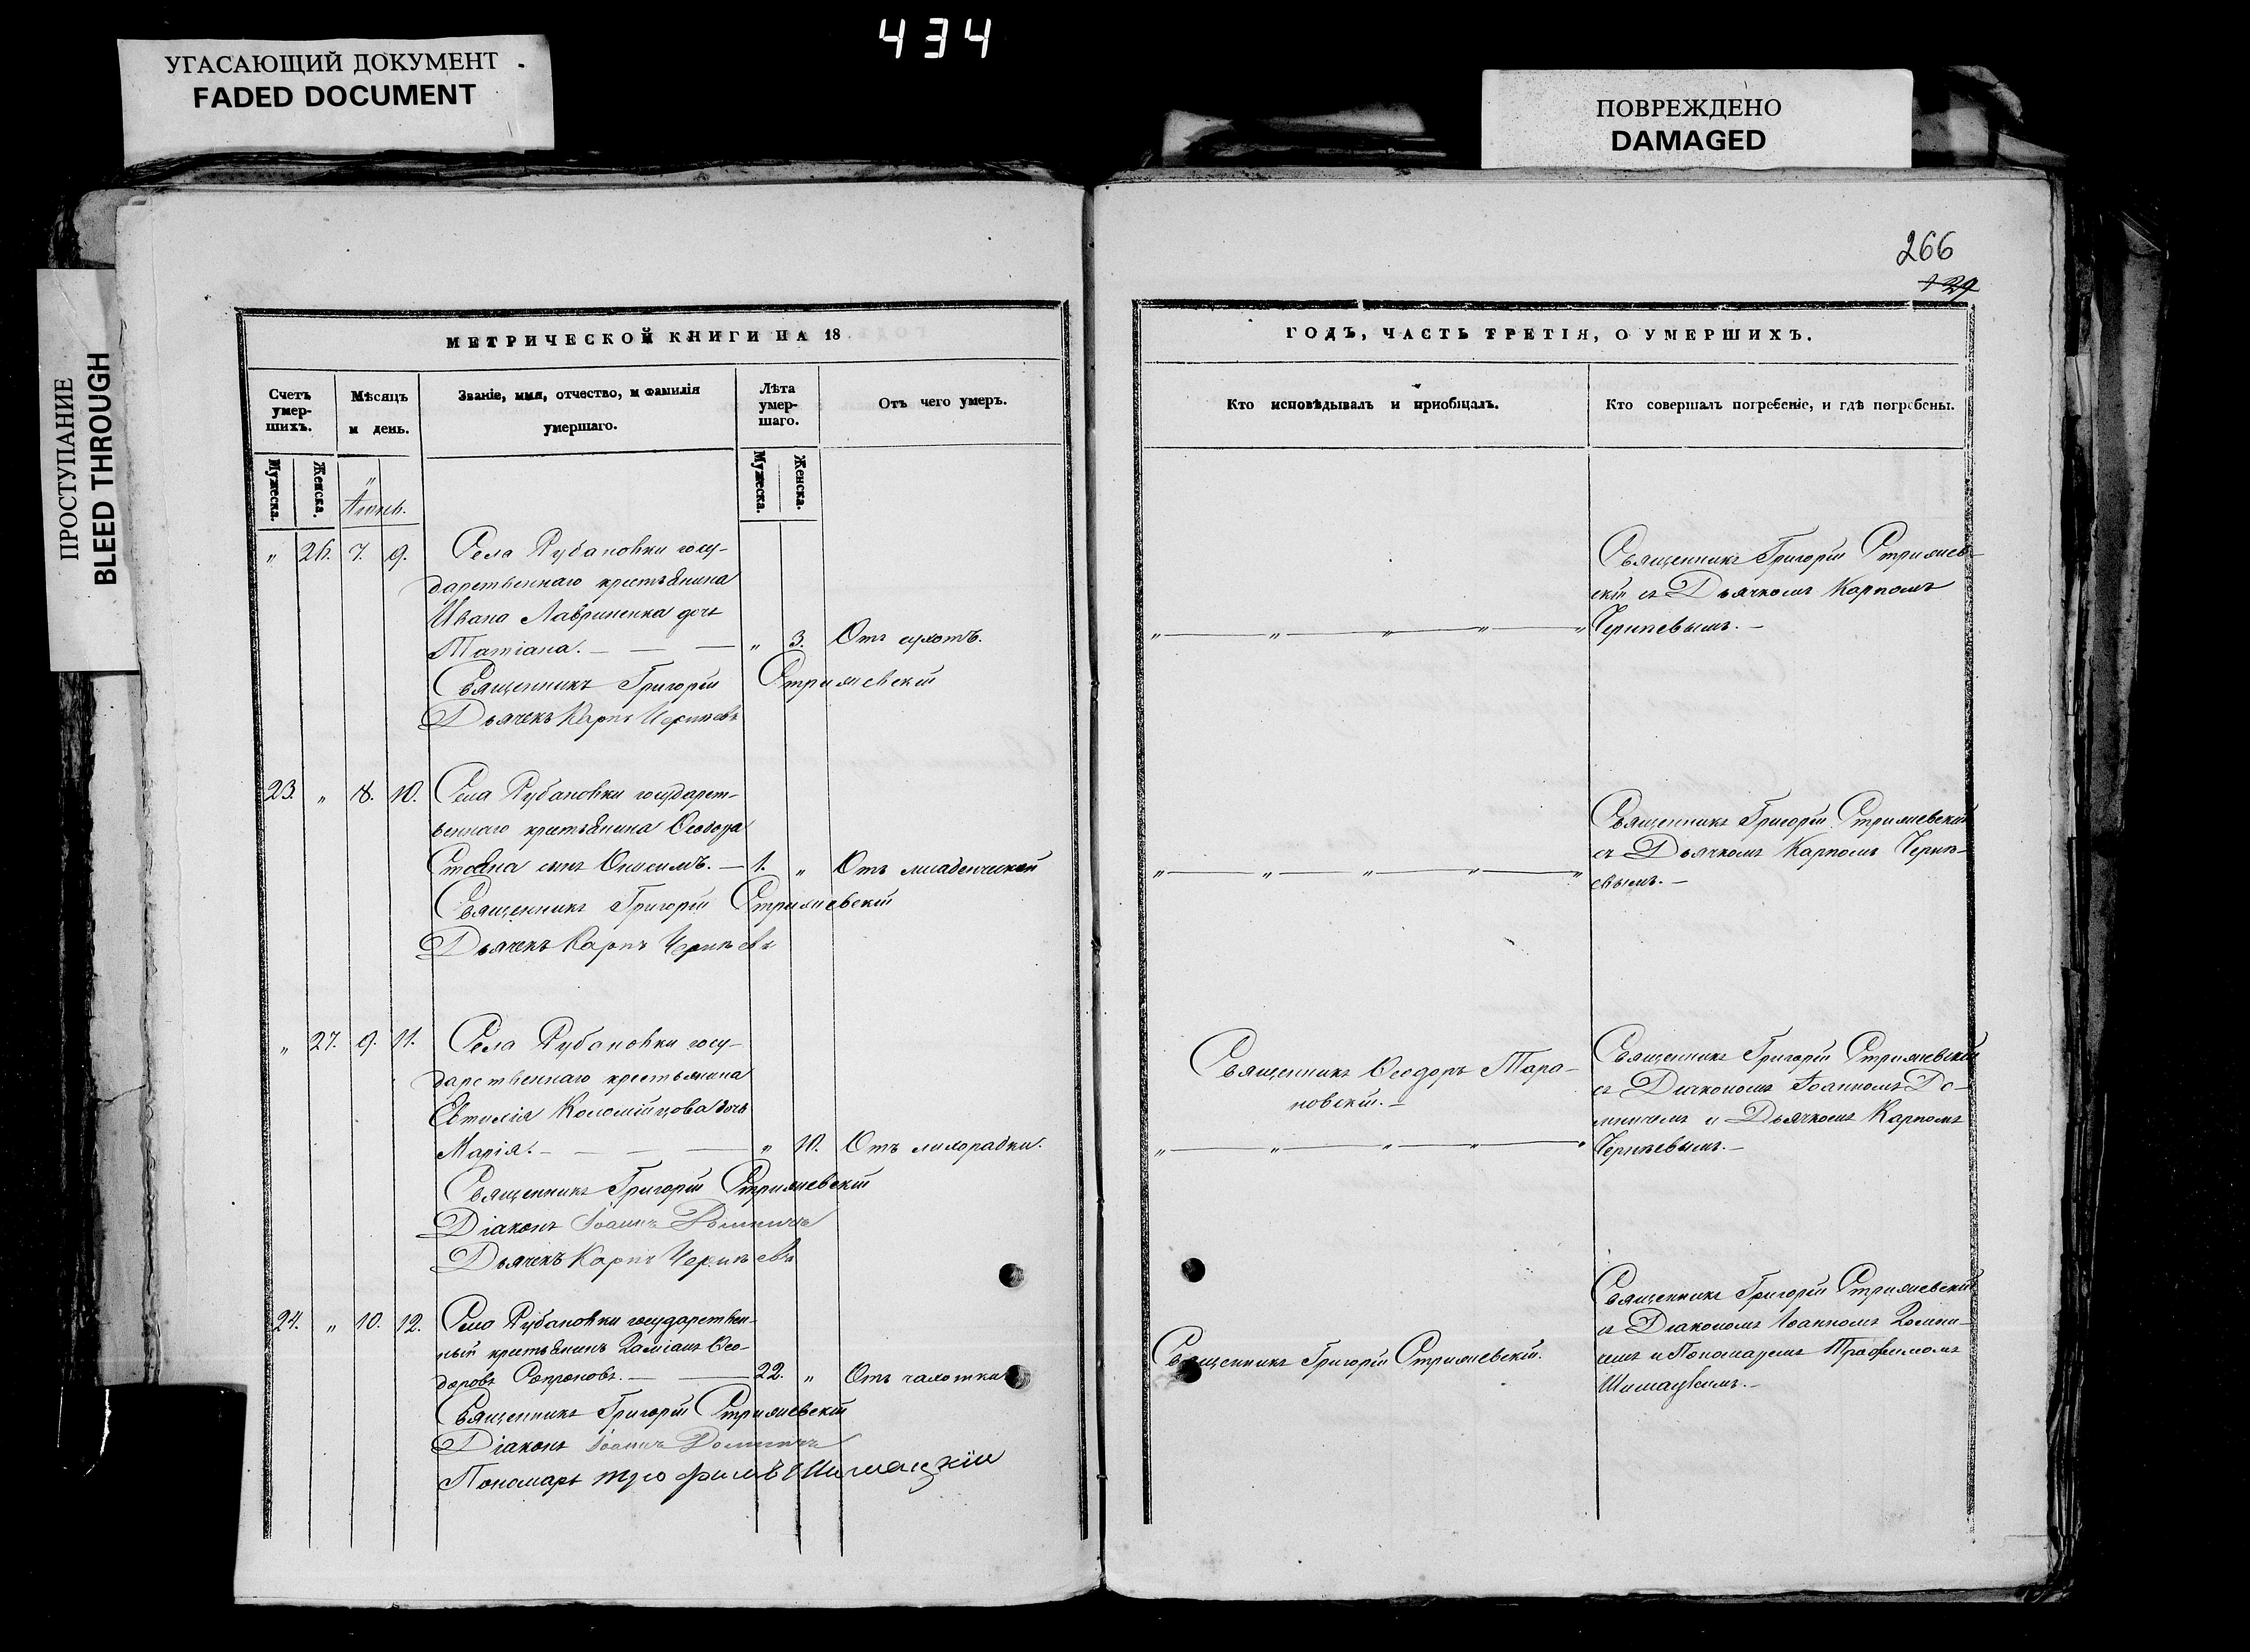 434
УГАСАЮЩИЙ ДОКУМЕНТ
FADED DOCUMENT
ПОВРЕЖДЕНО
DAMAGED
ПРОСТУПАНИЕ
BLEED THROUGH
266
129
МЕТРИЧЕСКОЙ КНИГИ НА 18
Счетъ умер-шихъ.
Мѣсяцъ и день.
Званіе, имя, отчество, и фамилія умершаго.
Лѣта умер-шаго.
Отъ чего умеръ.
Мужеска. Женска.
Мужеска. Женска.
„ 26. 7. 9. Села Рубановки госу-
дарственнаго крестьянина
Ивана Лавриненка дочь
Татіана. — — — „ 3.
Священникъ Григорій Стрижевскій
Дьячекъ Карпъ
23. „ 8. 10. Села Рубановки государст-
веннаго крестьянина Ѳеодора
сынъ Онисимъ. — 1. „ Отъ младенческой
Священникъ Григорій Стрижевскій
Дьячекъ Карпъ
„ 27. 9. 11. Села Рубановки госу-
дарственнаго крестьянина
Евтихія Коломійцова дочь
Марія. — — — „ 10. Отъ лихорадки.
Священникъ Григорій Стрижевскій
Діаконъ Іоаннъ
Дьячекъ Карпъ
24. „ 10. 12. Села Рубановки государствен-
ный крестьянинъ Даміанъ Ѳео-
доровъ — 22. „ Отъ чахотки
Священникъ Григорій Стрижевскій
Діаконъ Іоаннъ
Пономарь Трофимъ Шимацкій
ГОДЪ, ЧАСТЬ ТРЕТІЯ, О УМЕРШИХЪ.
Кто исповѣдывалъ и пріобщалъ.
Кто совершалъ погребеніе, и гдѣ погребены.
Священникъ Григорій Стрижев-
скій съ Дьячкомъ Карпомъ
„ — „ — „ — „ — „
Священникъ Григорій Стрижевскій
съ Дьячкомъ Карпомъ
„ — „ — „ — „ — „
Священникъ Ѳеодоръ Тара-
новскій. —
„ — „ — „ — „ — „
Священникъ Григорій Стрижевскій
съ Діакономъ Іоанномъ До-
и Дьячкомъ Карпомъ
Священникъ Григорій Стрижевскій.
Священникъ Григорій Стрижевскій
съ Діакономъ Іоанномъ
и Пономаремъ Трофимомъ
Шимацкимъ. —